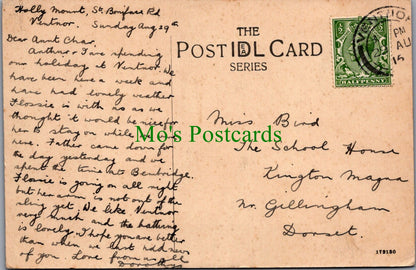 Holly Mount, St. Boniface Rd
Ventnor. Sunday Aug 29th
Dear Aunt Char,
Arthur & I are spending
our holiday at Ventnor. We
have been here a week and
have had lovely weather
Flossie is with us as we
thought it would be nice for
her to stay on while we
were here. Father came down for
the day yesterday and we
spent the time into Bembridge.
Flossie is going on all right
but her arm is not out of the
sling yet. We like Ventnor
very much and the bathing
is lovely. I hope you are better
than when we last had news
of you. Love from us all
Dorothy
THE
POST IDL CARD
SERIES
VENTNOR
PM
AU
15
HALFPENNY
Miss Bird
The School House
Kington Magna
Nr. Gillingham
Dorset
Mo's Postcards
179180